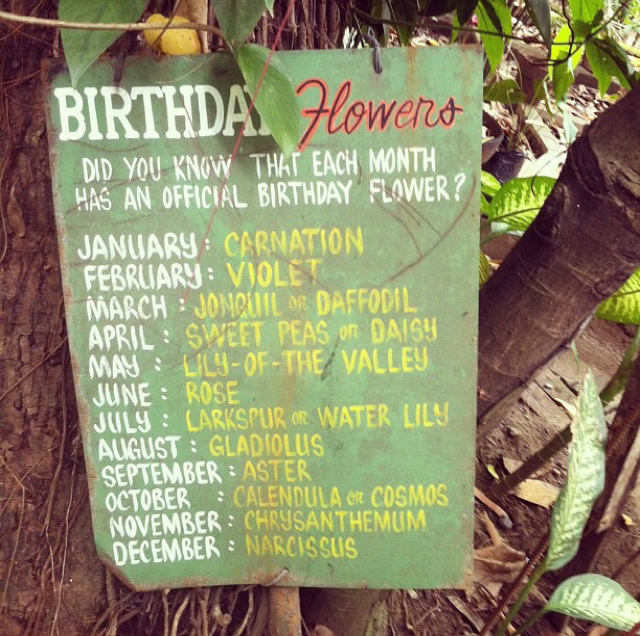 BIRTHDAY Flowers
DID YOU KNOW THAT EACH MONTH
HAS AN OFFICIAL BIRTHDAY FLOWER?
JANUARY: CARNATION
FEBRUARY: VIOLET
MARCH: JONQUIL or DAFFODIL
APRIL: SWEET PEAS or DAISY
MAY: LILY-OF-THE VALLEY
JUNE: ROSE
JULY: LARKSPUR or WATER LILY
AUGUST: GLADIOLUS
SEPTEMBER: ASTER
OCTOBER: CALENDULA or COSMOS
NOVEMBER: CHRYSANTHEMUM
DECEMBER: NARCISSUS